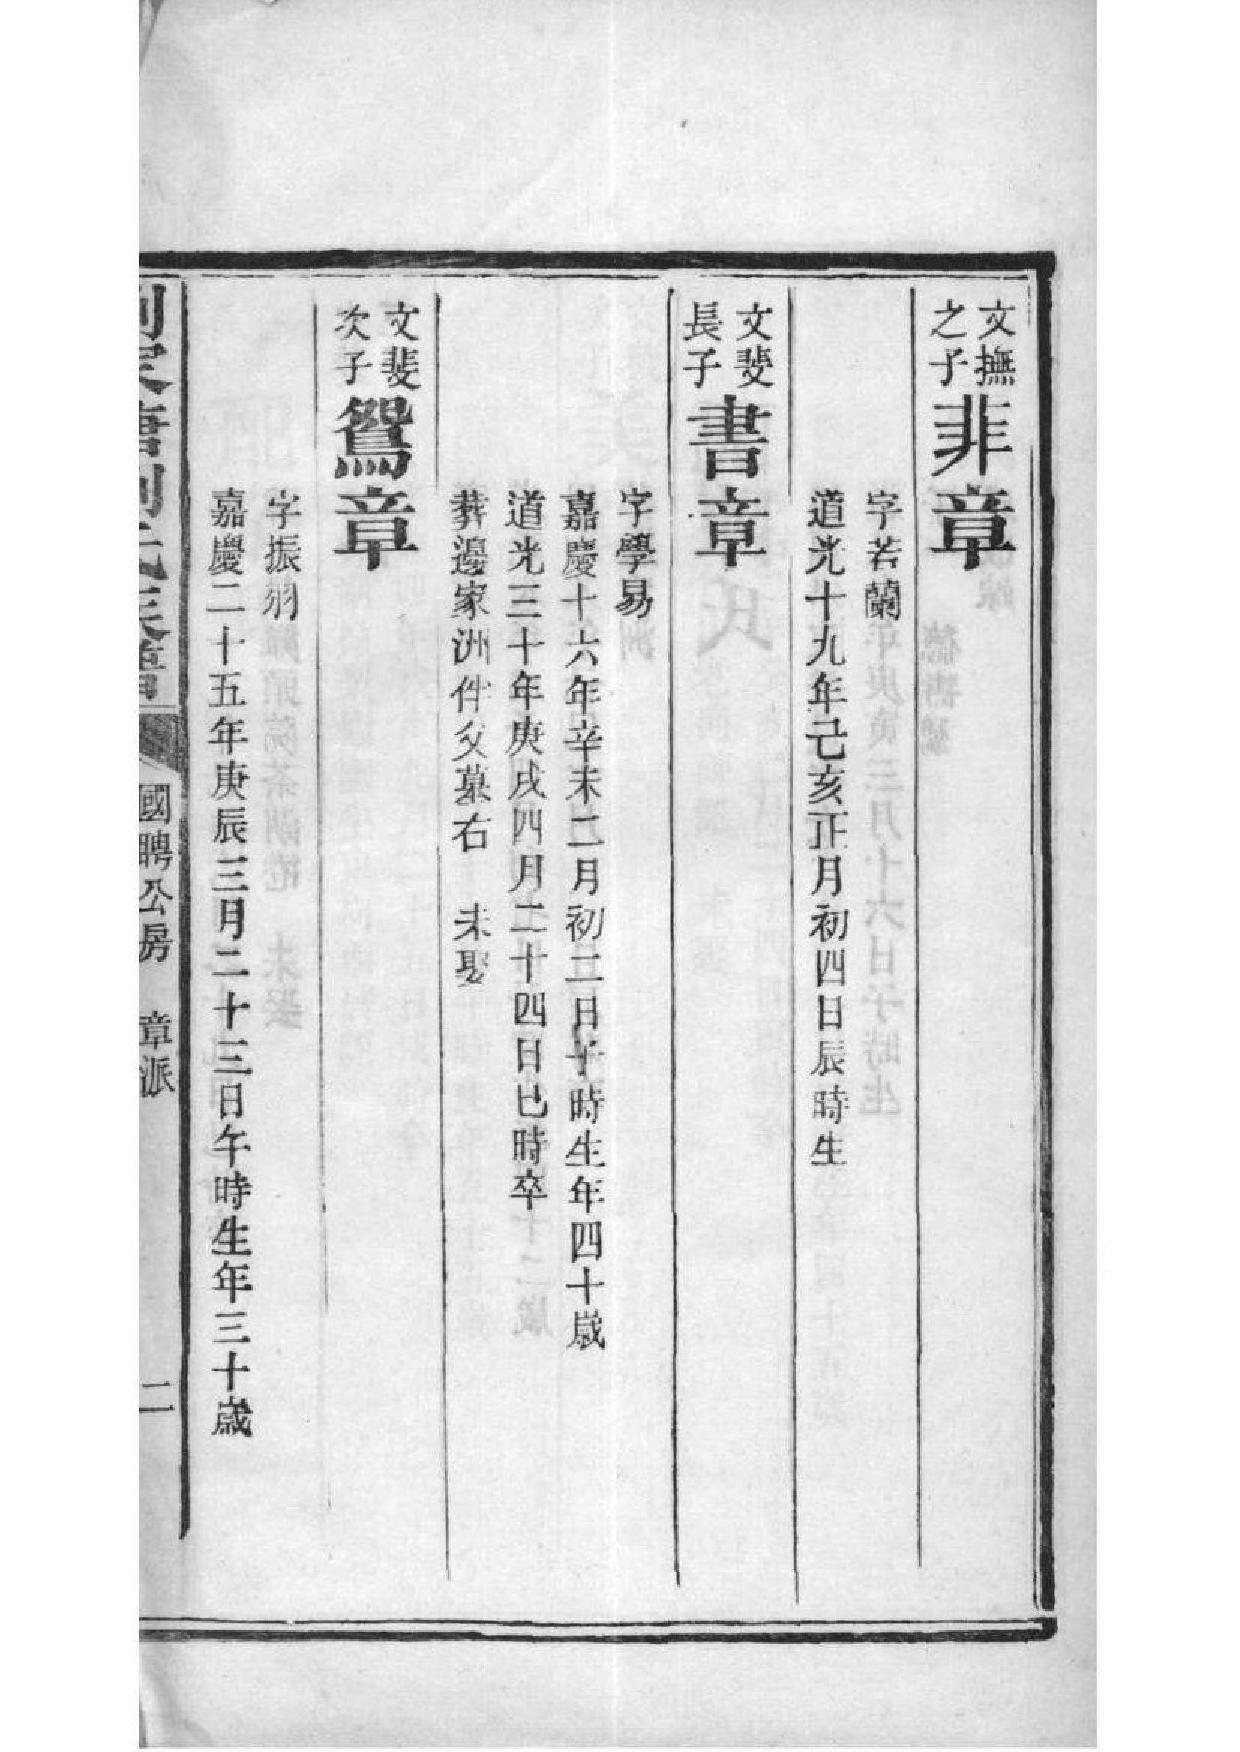 文撫
之子
非章
字若蘭
道光十九年己亥正月初四日辰時生
文斐
長子
書章
字學易
嘉慶十六年辛未二月初二日子時生年四十歲
道光三十年庚戌四月二十四日巳時卒
葬邊家洲伴父墓右　未娶
文斐
次子
鴛章
字振羽
嘉慶二十五年庚辰三月二十三日午時生年三十歲
國聘公房　章派
二